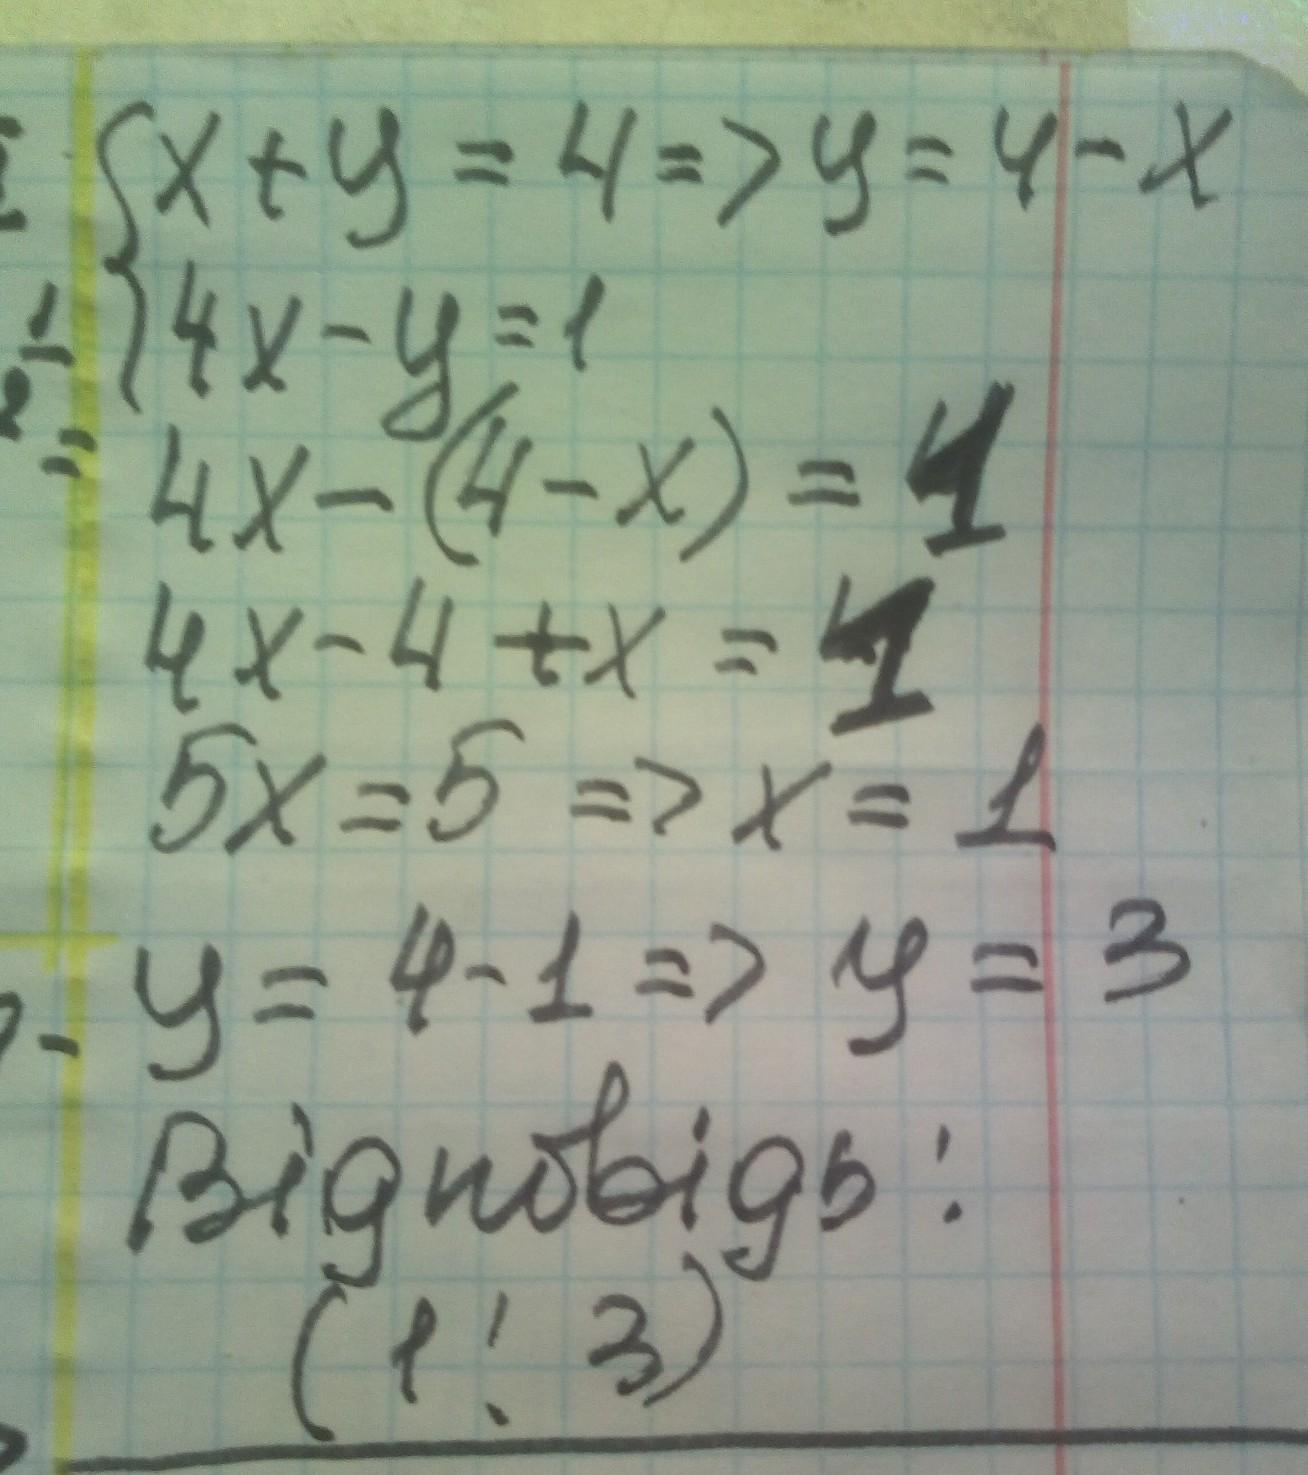 x + y = 4 => y = 4 - x
4x - y = 1
4x - (4 - x) = 1
4x - 4 + x = 1
5x = 5 => x = 1
y = 4 - 1 => y = 3
Відповідь:
(1; 3)